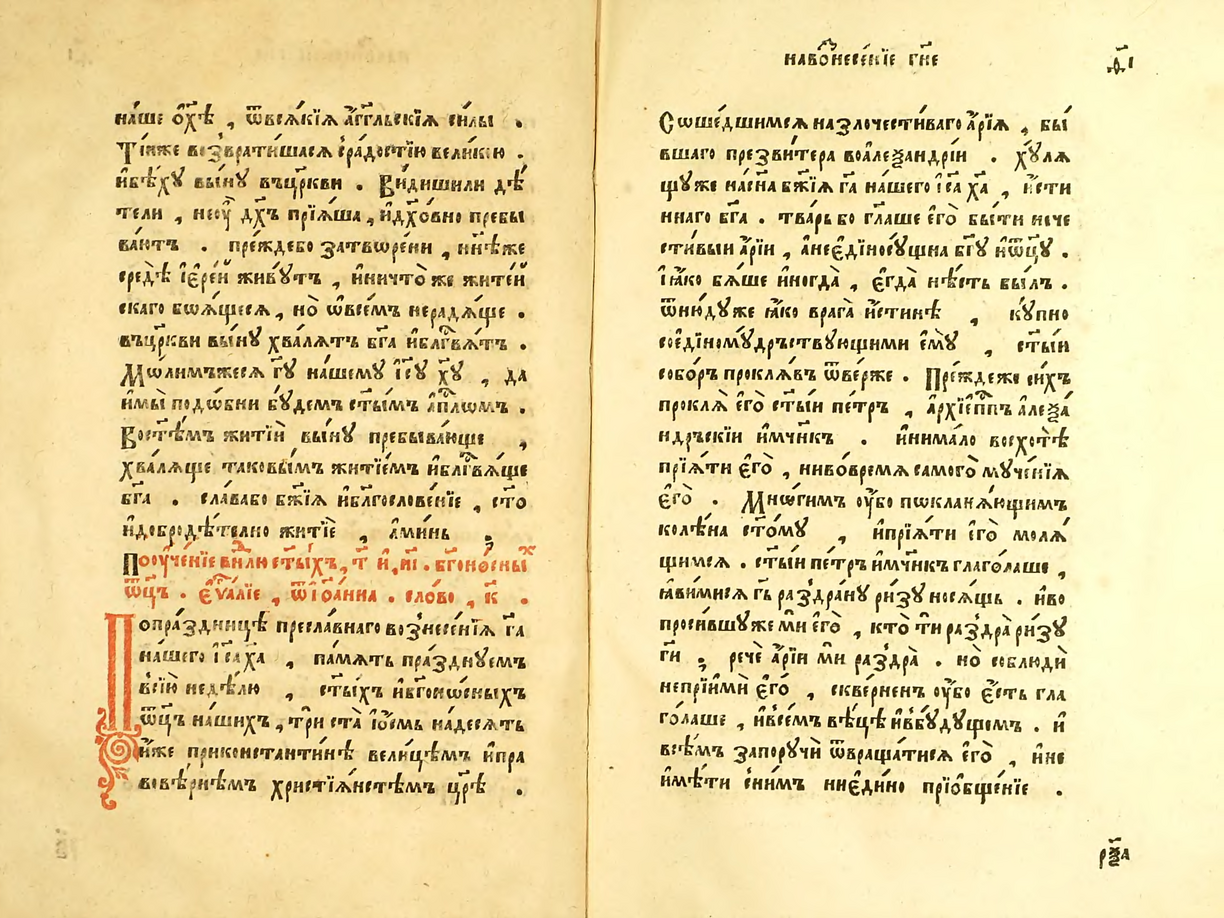 наше ѻ҆хѣ , ѿвсѧ́кїѧ а҆́гг҃льскїѧ си́лы .
Ті́иже возврати́шасѧ срадостїю великою .
и҆бѣ́хꙋ вы́нꙋ въцр҃кви . Ви́дишили дѣ́
тели , несꙋ̑ дх҃ъ прїѧ́ша , и҆дх҃о́вно пребы
ва́ютъ . пре́ждебо затвѡре́ни , нн҃ѣже
средѣ̀ і҆є҆ре́й живꙋ́тъ , и҆ничто̀же жите́й
скаго боѧ́щесѧ , но̀ ѡ҆все́мъ нерадѧ́ще .
въцр҃кви вы́нꙋ хва́лѧтъ бг҃а и҆блг҃вѧ́тъ .
Мо́лимъжесѧ гꙋ҃ на́шемꙋ і҆сꙋ҃ хꙋ҃ , да
и҆мы̀ подѡ́бни бꙋ́демъ ст҃ы́мъ а҆пⷭ҇лѡмъ .
Востѣ́мъ житїѝ вы́нꙋ пребыва́юще ,
хва́лѧще таковы́мъ житїе́мъ и҆блг҃вѧ́ще
бг҃а . сла́вабо бж҃їѧ и҆блг҃ослове́нїе , є҆сто
и҆доброде́телно житїѐ , а҆ми́нь .
Поꙋче́нїе внⷣлю ст҃ы́хъ , т҃ и҆ , и҃і . бг҃оно́сныⷯ
ѻ҆ц҃ъ . є҆ѵⷢ҇а́лїе , ѿіѡа́нна . сло́во , к҃ .
Попра́здницѣ пресла́внаго вознесе́нїѧ гⷭ҇а
на́шего і҆са҃ ха҃ , па́мѧть пра́зднꙋемъ
всїю̀ неде́лю , ст҃ы́хъ и҆бг҃онѡ́сныхъ
ѻ҆ц҃ъ на́шихъ , три́ ста̀ и҆ѻ́семь на́десѧть
и҆̀же приконстанти́нѣ вели́цѣмъ и҆пра
вовѣ́рнѣмъ христїѧ́нстѣмъ цр҃ѣ̀ .
навъⷪзнесе́нїе гⷭ҇не
Сошѐдшимсѧ назлочести́ваго а҆́рїѧ , бы́
вшаго презви́тера воалеѯандрі́и . хꙋ́лѧ
щꙋже насн҃а бж҃їѧ га҃ на́шего і҆са҃ ха҃ , и҆́сти
ннаго бг҃а . тва́рь бо гл҃аше є҆го̀ бы́ти нече
сти́выи а҆́рїи , а҆неє҆дїносꙋ́щна бг҃ꙋ и҆ѻ҆ц҃ꙋ̀ .
І҆ ꙗ҆́ко бѧ́ше и҆ногда̀ , є҆гда̀ нѣ́сть бы́лъ .
ѿню́дꙋже ꙗ҆́ко врага̀ и҆́стинѣ , кꙋ́пно
соє҆дїномꙋ́дрьствꙋющими є҆мꙋ̀ , ст҃ы́и
собо́ръ проклѧ́въ ѿве́рже . Пре́ждеже си́хъ
проклѧ̀ є҆го̀ ст҃ы́и пе́тръ , а҆рхїє҆пⷭ҇пъ а҆леѯа́
ндръскїи и҆мч҃нкъ . и҆нима́ло восхотѣ̀
прїѧ́ти є҆го̀ , ниво́времѧ самого̀ мꙋче́нїѧ
є҆го̀ . Мно́гимъ ᲂу҆́бо поклонѧ́ющимъ
колѣ́на ст҃о́мꙋ , и҆прїѧ́ти є҆го̀ молѧ́
щимсѧ . ст҃ы́и пе́тръ и҆мч҃нкъ глаго́лаше ,
ꙗ҆ви́мисѧ гь҃ раздра́нꙋ ри́зꙋ носѧ́щь . и҆во
проси́вшꙋже мѝ є҆го̀ , кто̀ ти раздра̀ ри́зꙋ
ги҃ ; речѐ а҆́рїи мѝ раздра̀ . но̀ соблюдѝ
неприи́мѝ є҆го̀ , скве́рненъ ᲂу҆́бо є҆́сть гла
го́лаше , и҆все́мъ вѣ́цѣ и҆вбꙋ́дꙋщемъ . и҆
все́мъ запорꙋчѝ ѿвраща́тисѧ є҆го̀ , и҆не
и҆мѣ́ти сни́мъ ниє҆ди́но прїѻбще́нїе .
рѯ҃а